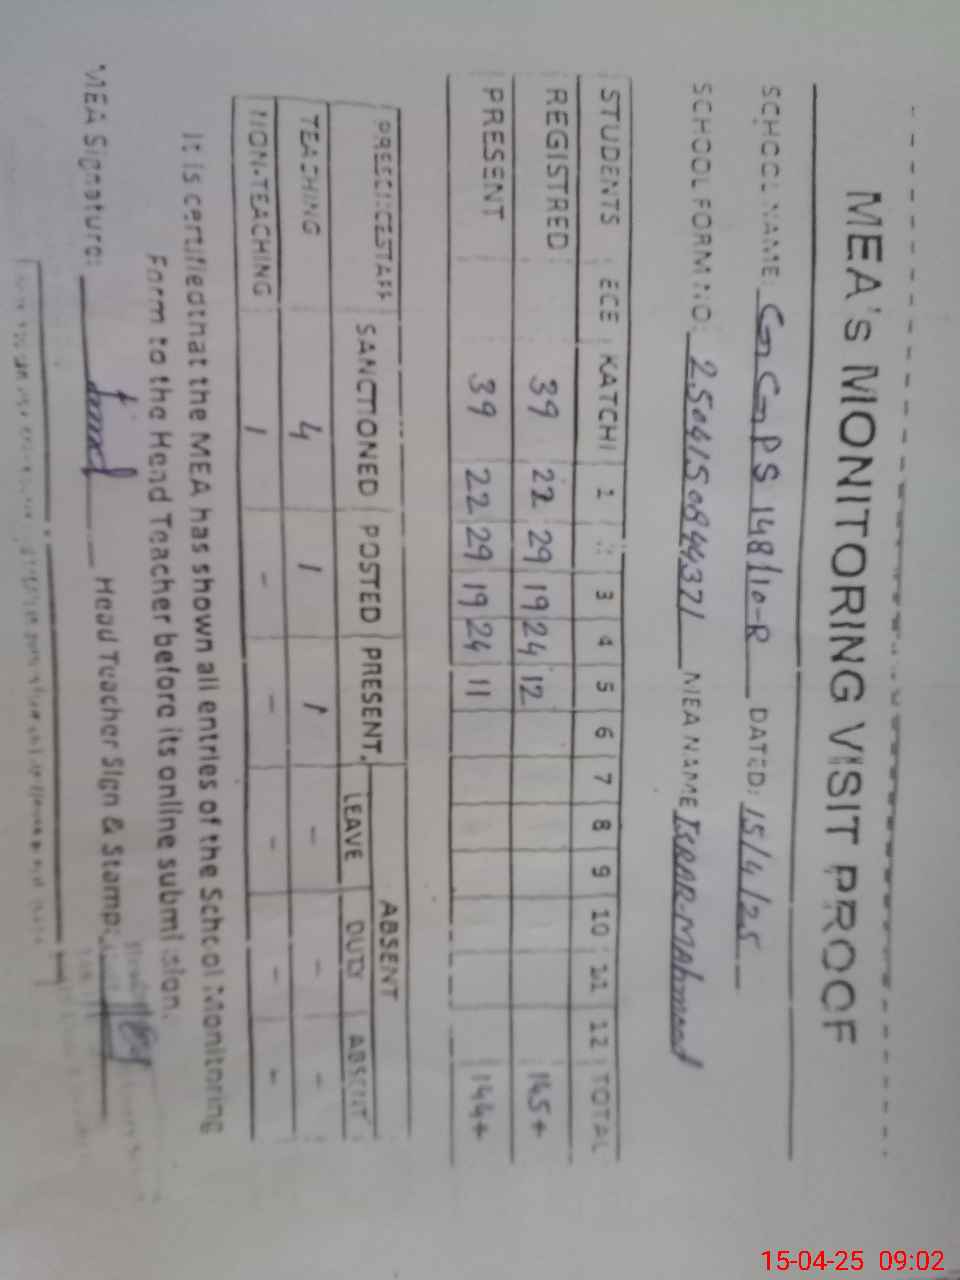 MEA'S MONITORING VISIT PROOF
SCHOOL NAME: GGPS 148/10-R DATED: 15/4/25
SCHOOL FORM NO: 2504150844371 MEA NAME ISRAR Mahmood
STUDENTS ECE KATCHI 1 2 3 4 5 6 7 8 9 10 11 12 TOTAL
REGISTRED 39 22 29 19 24 12 145+
PRESENT 39 22 29 19 24 11 144+
PRESENCE STAFF SANCTIONED POSTED PRESENT ABSENT
LEAVE DUTY ABSENT
TEACHING 4 1 1 - - -
NON-TEACHING 1 - - - - -
It is certified that the MEA has shown all entries of the School Monitoring
Form to the Head Teacher before its online submission.
MEA Signature: Head Teacher Sign & Stamp:
15-04-25 09:02